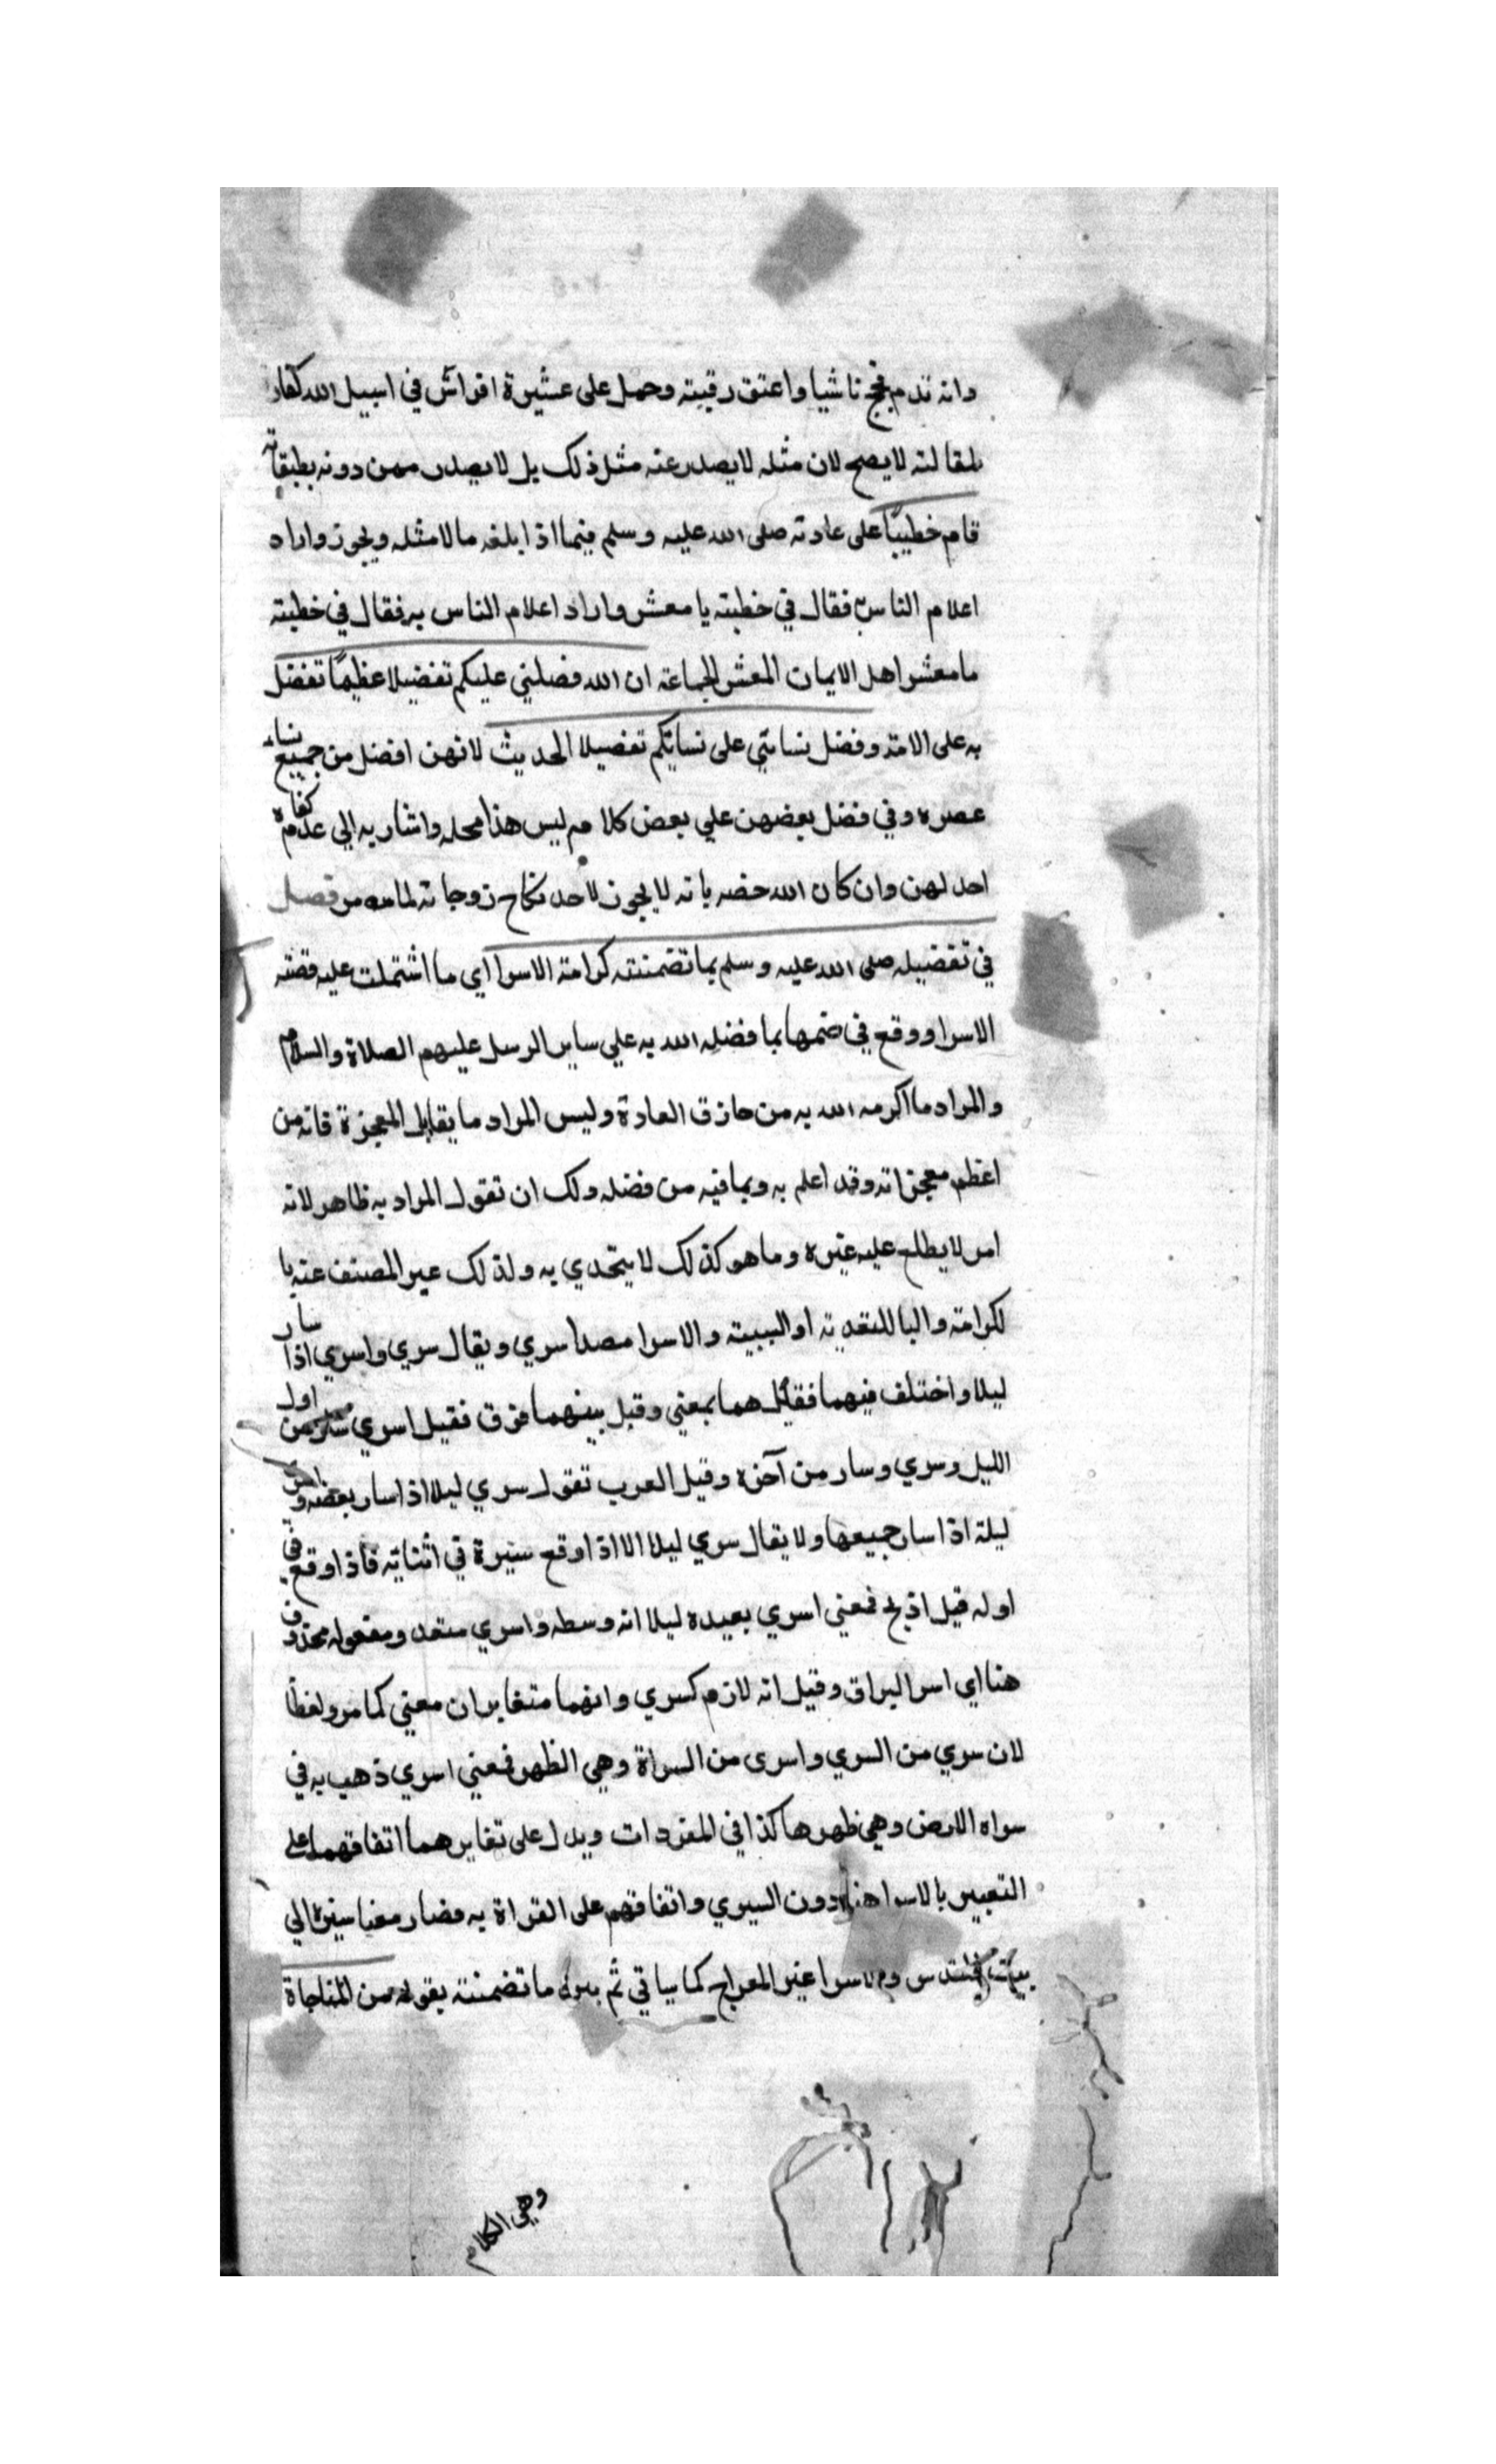 وانه تدم فحج ناشيا واعتق رقبته وحمل على عشيرة افراس في اسبيل الله كفار
لمقالته لا يصح لان مثله لا يصدر عنه مثل ذلك بل لا يصدر ممن دونه بطبقاته
قام خطيبًا على عادته صلى الله عليه وسلم فيما اذا بلغه مالا مثله ويجوز واراد
اعلام الناس فقال في خطبته يا معشر واراد اعلام الناس به فقال في خطبته
مامعشر اهل الايمان المعشر الجماعة ان الله فضلني عليكم تفضيلا عظيمًا تفضل
به على الامة وفضل نسائي على نسائكم تفضيلا الحديث لانهن افضل من جميع نساء
عصره وفي فضل بعضهن علي بعض كلام ليس هذا محله واشار به الي عدم كفاءة
احد لهن وان كان الله خصه بانه لا يجوز لاحد نكاح زوجاته لما مر فصل
في تفضيله صلى الله عليه وسلم بما تضمنته كرامة الاسرا اي ما اشتملت عليه قصته
الاسرا ووقع في ضمها بما فضله الله به علي ساير الرسل عليهم الصلاة والسلام
والمراد ما اكرمه الله به من خارق العادة وليس المراد ما يقابل المعجزة فانه من
اعظم معجزاته وقد اعلم به وبما فيه من فضله ولك ان تقول المراد به ظاهر لانه
امر لا يطلع عليه غيره وما هو كذلك لا يتحدي به ولذلك عبر المصنف عنه با
لكرامة والبا للتعدية او السببية والاسرا مصدا سري ويقال سري واسري اذا سار
ليلا واختلف فيهما فقيل هما بمعني وقيل بينهما فرق فقيل اسري سار من اول
الليل وسري وسار من آخره وقيل العرب تقول سري ليلا اذا سار بعضه و
ليلة اذا سار جميعها ولا يقال سري ليلا الا اذا وقع سيرة في اثنايه فاذا وقع في
اوله قيل ادلج فمعني اسري بعبده ليلا انه وسطه واسري متعد ومفعوله محذوف
هنا اي اسر البراق وقيل انه لازم كسري وانهما متغايران معني كما مر ولفظا
لان سري من السري واسرى من السراة وهي الظهر فمعني اسري ذهب به في
سراه الارض وهي ظهرها كذا في المفردات ويدل على تغايرهما اتفاقهما على
التعبير بالاسرا هنا دون السيري واتفاقهم على القراة به فصار معنا سيره الي
بيت المقدس والاسرا غير المعراج كما سياتي ثم بين ما تضمنته بقوله من المناجاة
وهي الكلام